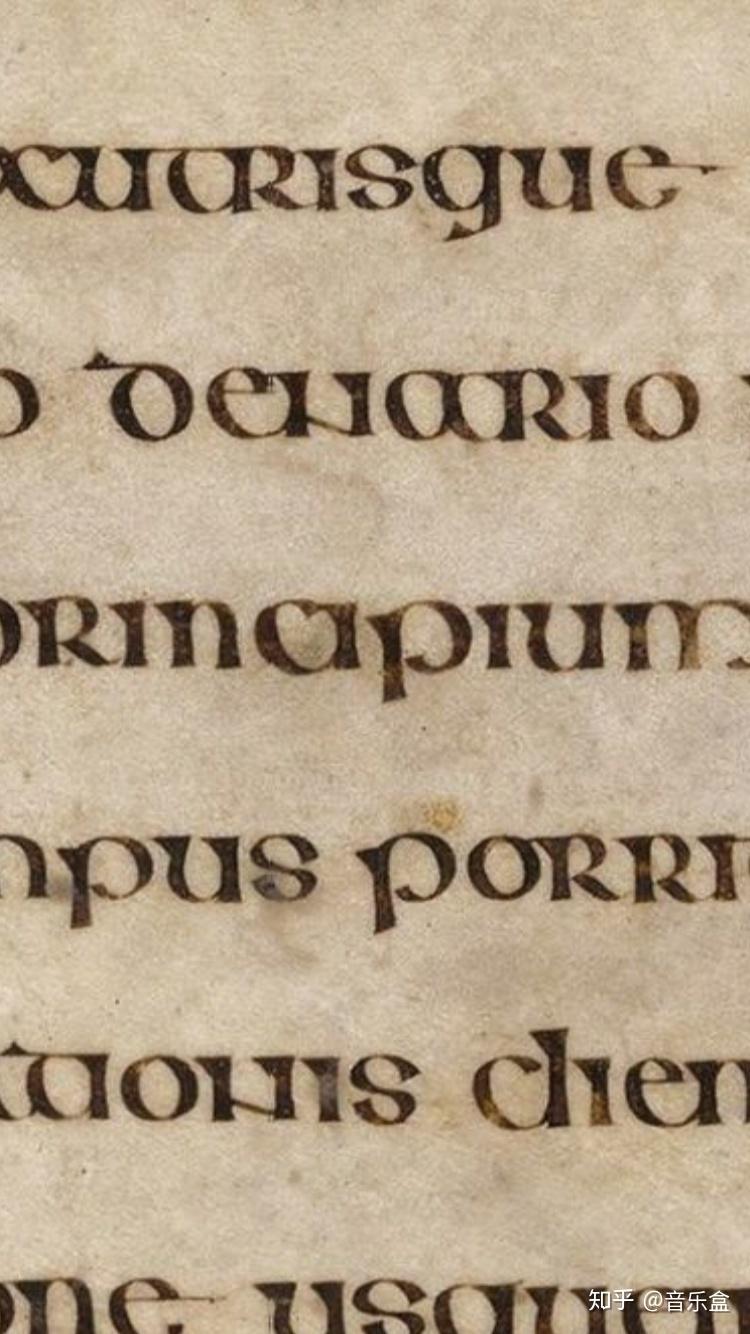 xutrisque
o denario
principium
mpus porri
tionis diem
one usque
知乎 @音乐盒